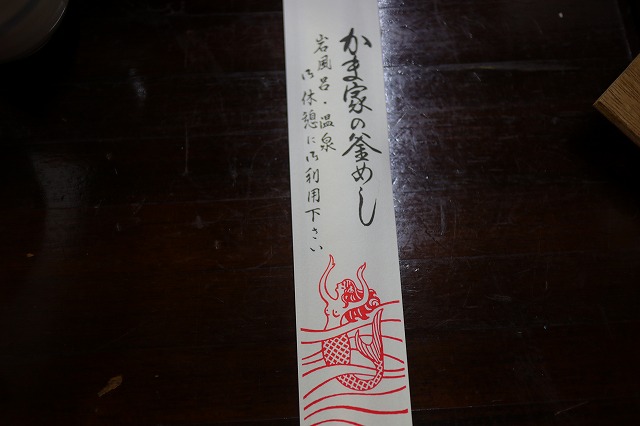 かま家の釜めし
岩風呂・温泉
御休憩に御利用下さい